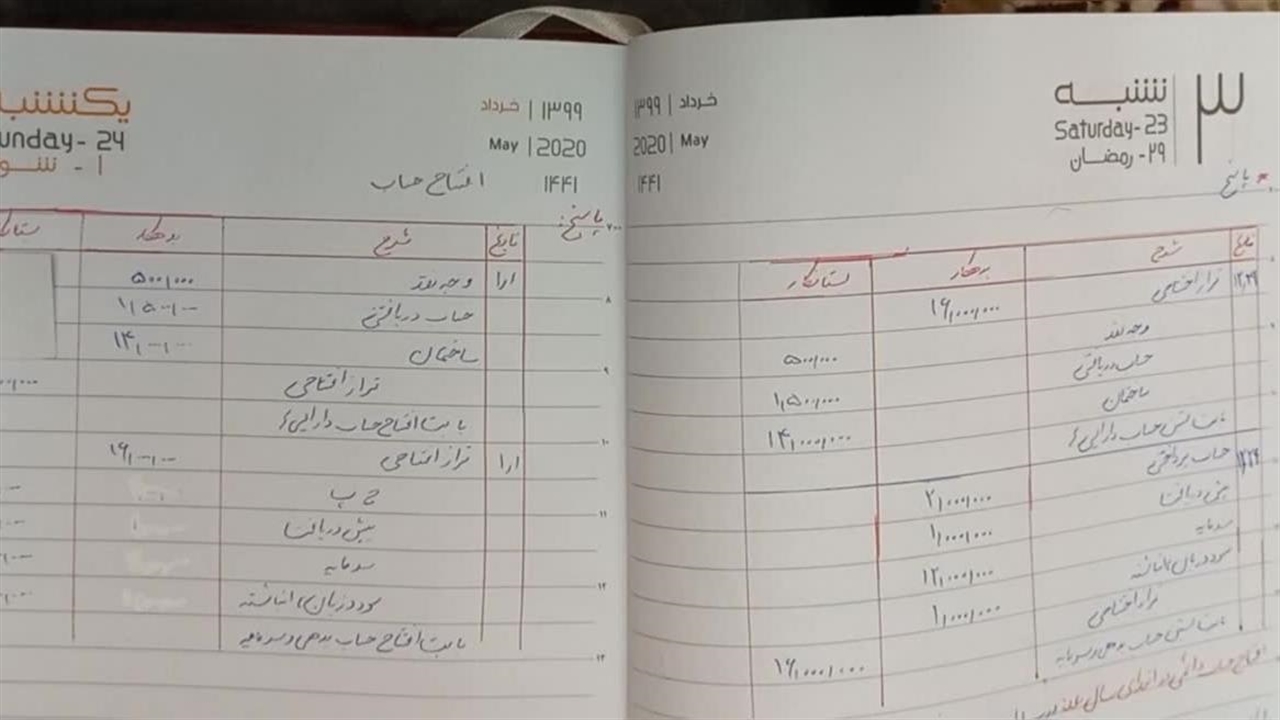 شنبه ۳
Saturday-23
۲۹- رمضان
۱۳۹۹ | خرداد
2020 | May
۱۴۴۱
پاسخ
تاریخ شرح بدهکار بستانکار
۱۲,۲۹ تراز افتتاحی ۱۶,۰۰۰,۰۰۰
وجه نقد ۵۰۰,۰۰۰
حساب دریافتنی ۱,۵۰۰,۰۰۰
ساختمان ۱۴,۰۰۰,۰۰۰
بابت بستن حساب دارایی
۱۲,۲۹ حساب پرداختنی ۲,۰۰۰,۰۰۰
پیش دریافت ۱,۰۰۰,۰۰۰
سرمایه ۱۲,۰۰۰,۰۰۰
سود و زیان انباشته ۱,۰۰۰,۰۰۰
تراز افتتاحی ۱۶,۰۰۰,۰۰۰
بابت بستن حساب بدهی و سرمایه
افتتاح حساب دائمی در ابتدای سال
یکشنب
unday- 24
۱ - شو
خرداد | ۱۳۹۹
May | 2020
۱۴۴۱
افتتاح حساب
پاسخ:
تاریخ شرح بدهکار
۱/۱ وجه نقد ۵۰۰,۰۰۰
حساب دریافتنی ۱,۵۰۰,۰۰۰
ساختمان ۱۴,۰۰۰,۰۰۰
تراز افتتاحی
بابت افتتاح حساب دارایی
۱/۱ تراز افتتاحی ۱۶,۰۰۰,۰۰۰
ح پ
پیش دریافت
سرمایه
سود و زیان انباشته
بابت افتتاح حساب بدهی و سرمایه